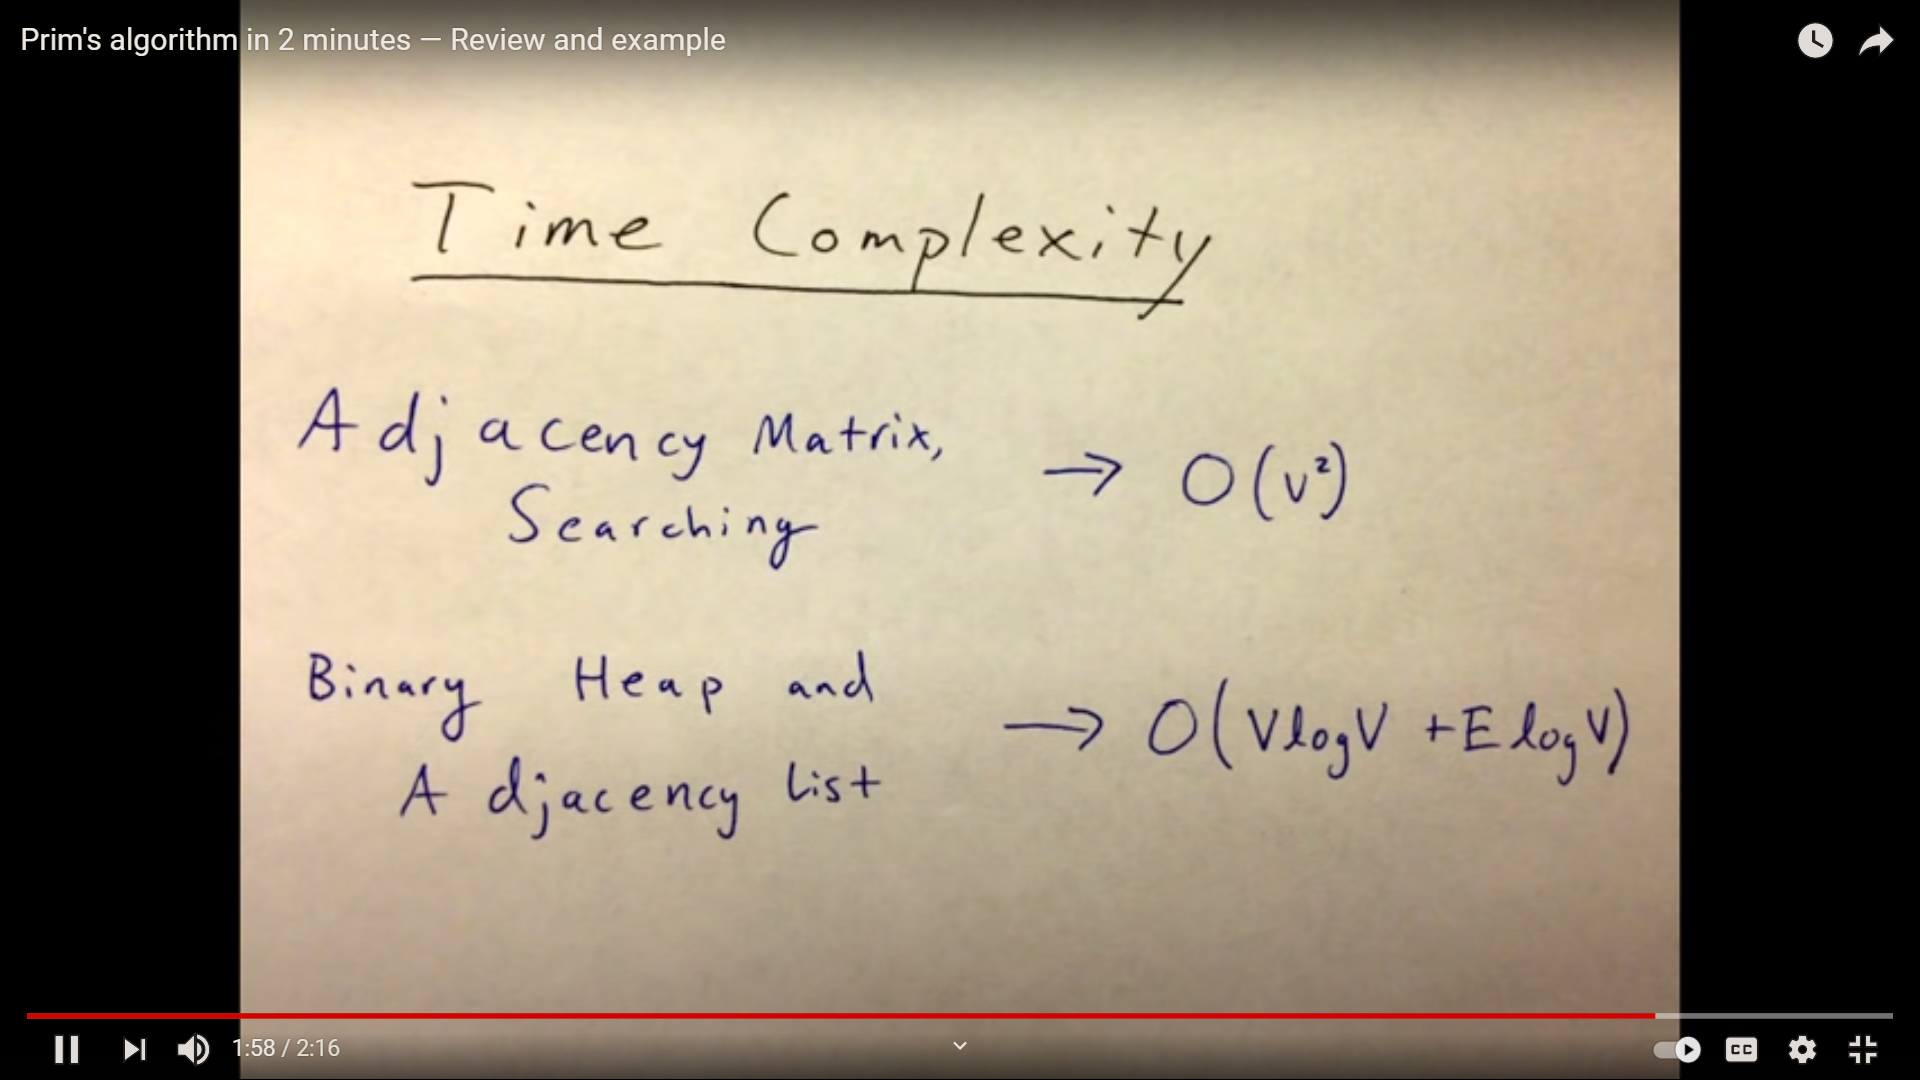 Prim's algorithm in 2 minutes — Review and example
Time Complexity
Adjacency Matrix,
Searching
→ O(v²)
Binary Heap and
Adjacency List
→ O(VlogV + E logV)
1:58 / 2:16
CC